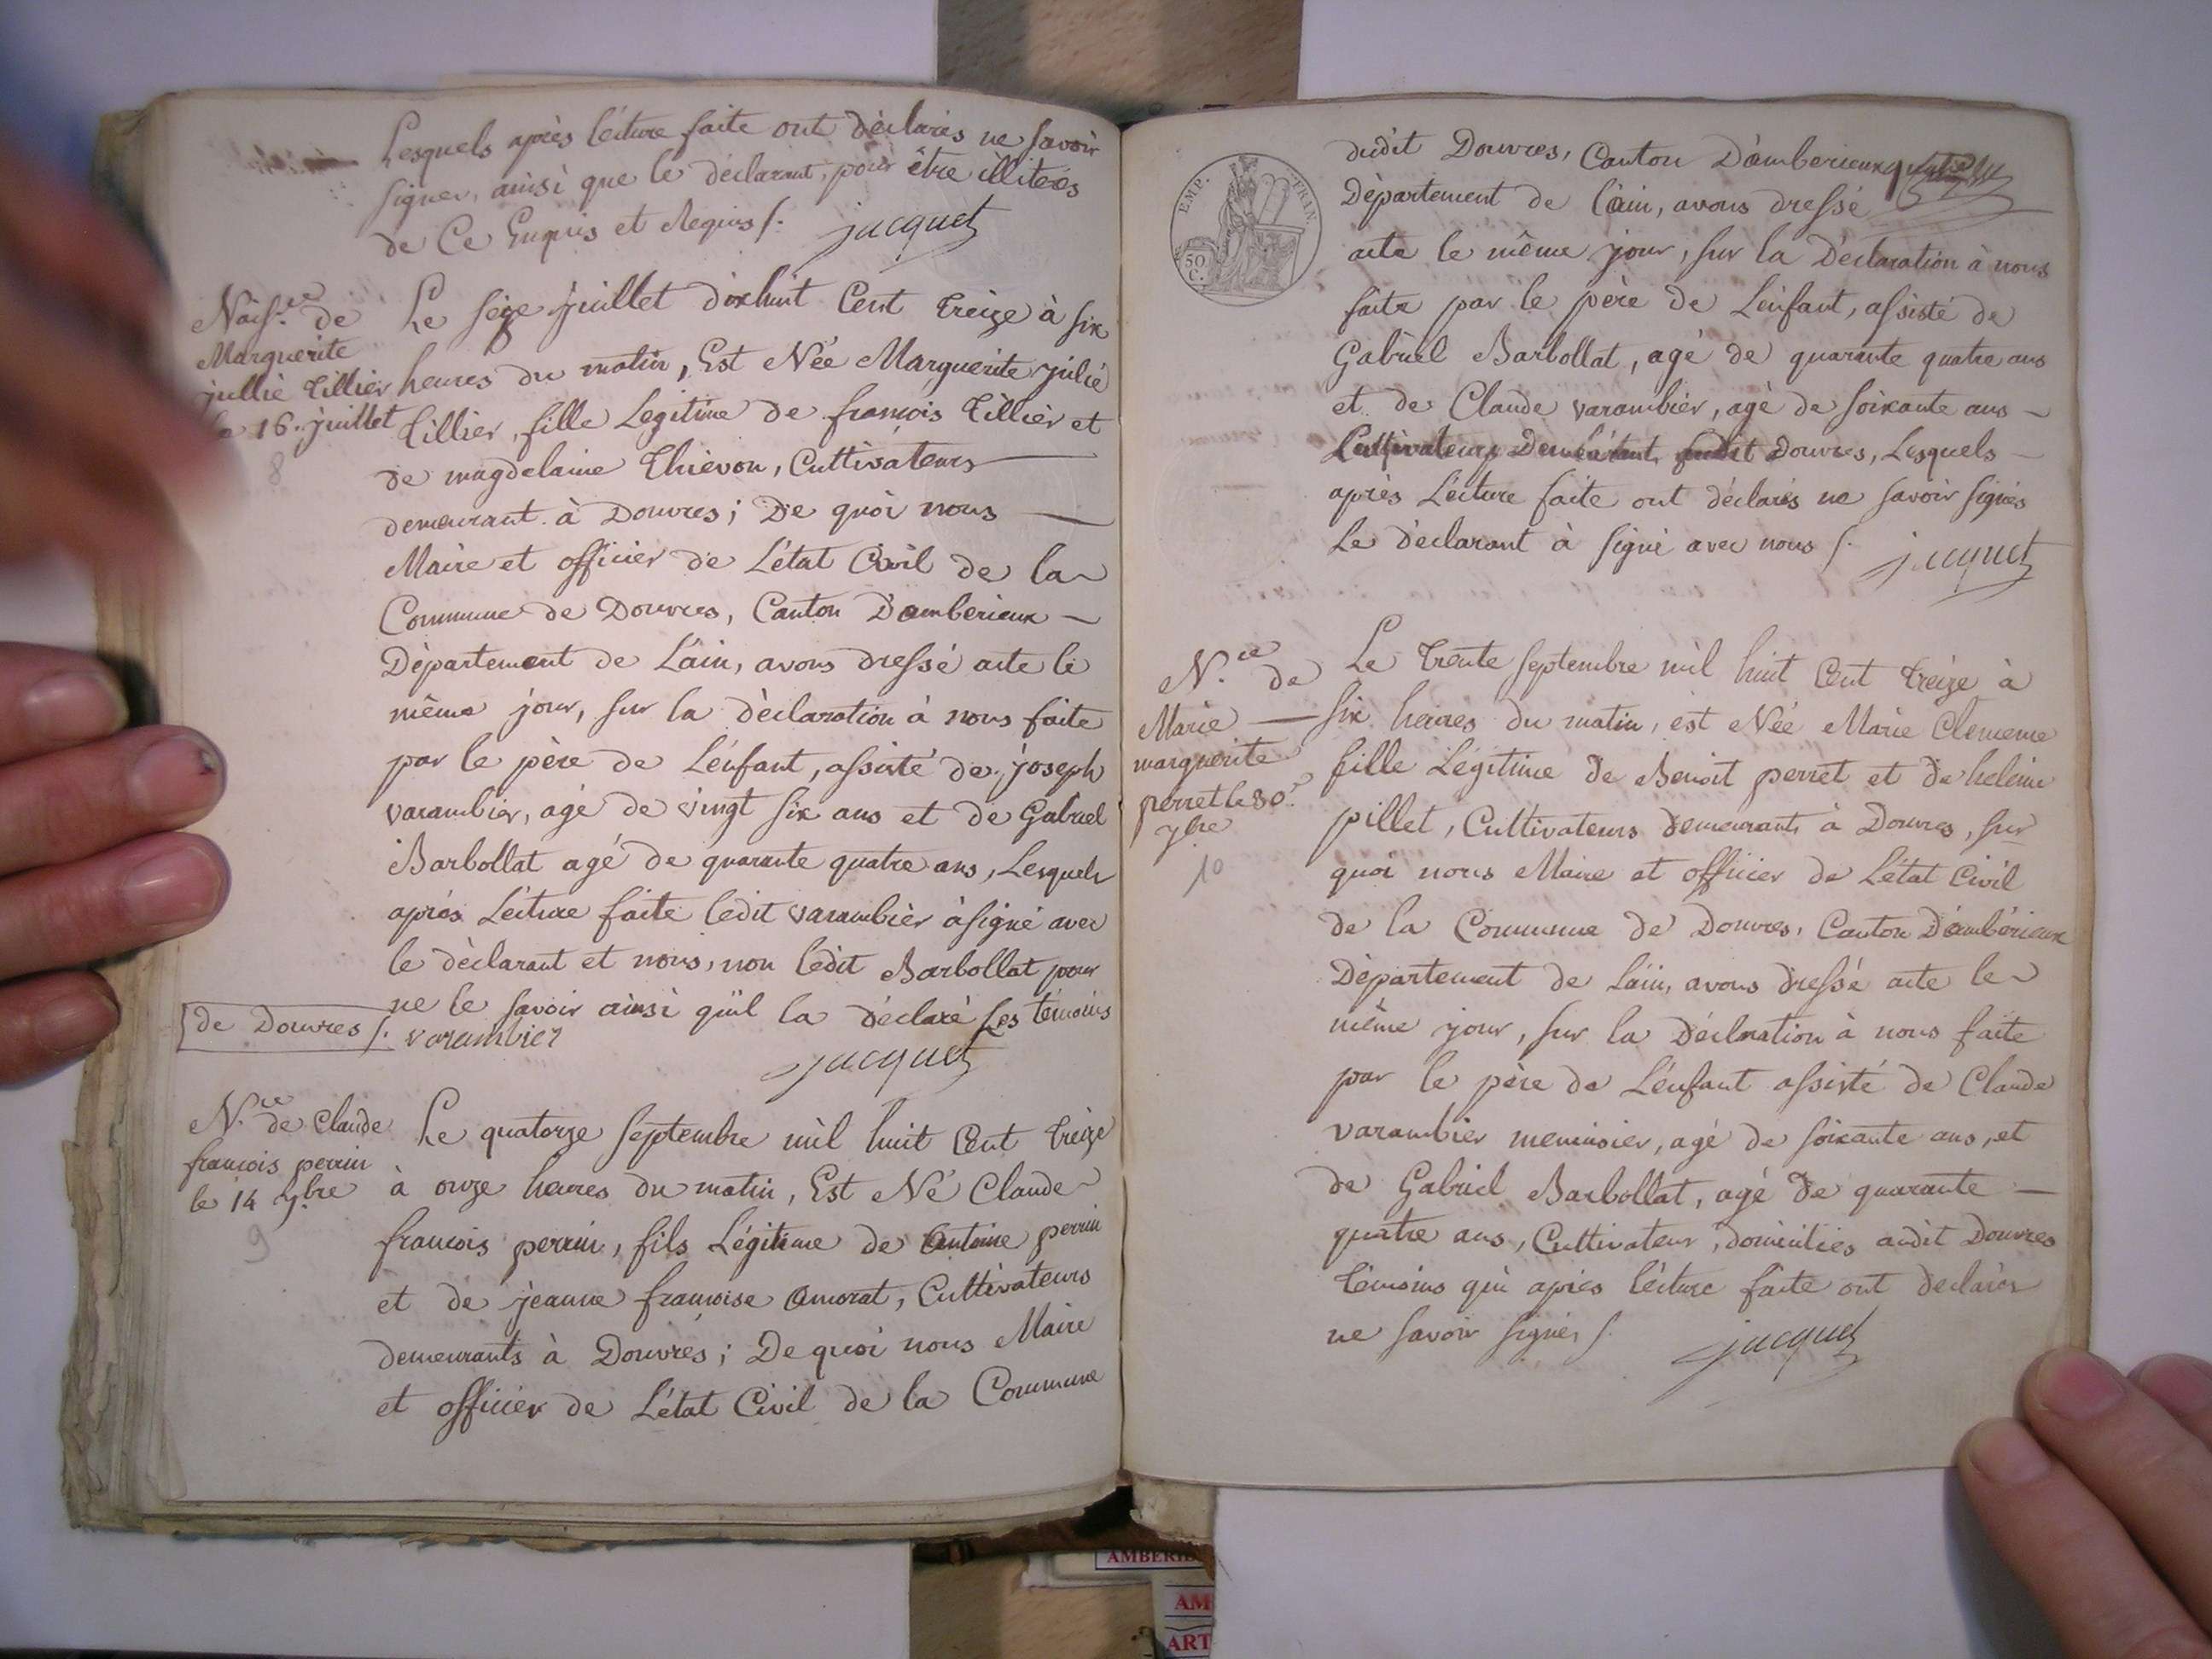 Lesquels après lécture faite ont déclarés ne savoir
signer, ainsi que le déclarant, pour être illiterés
de Ce Enquis et Requis /. jacquet
Naisce de
Marguerite
jullié Tillier
le 16. juillet
8
Le seize juillet dixhuit Cent treize à six
heures du matin, Est Née Marguerite julié
Tillier, fille Legitime de françois Tillier et
de magdelaine Thievon, Cultivateurs
demeurant à Douvres; De quoi nous
Maire et officier de L'état Civil de la
Commune de Douvres, Canton D'amberieux
Département de L'ain, avons dressé acte le
même jour, sur la déclaration à nous faite
par le père de L'enfant, assisté de joseph
varambier, agé de vingt six ans et de Gabriel
Barbollat agé de quarante quatre ans, Lesquels
après Lécture faite ledit varambier à signé avec
le déclarant et nous, non ledit Barbollat pour
ne le savoir ainsi qu'il la déclaré Les témoins
de Douvres /. varambier
jacquet
N.ce de Claude
francois perrin
le 14 7.bre
9
Le quatorze septembre mil huit Cent treize
à onze heures du matin, Est Né Claude
francois perrin, fils Légitime de Antoine perrin
et de jeanne francoise Amorat, Cultivateurs
demeurants à Douvres; De quoi nous Maire
et officier de L'état Civil de la Commune
EMP. FRAN.
50 C.
dudit Douvres, Canton D'amberieux
Département de L'ain, avons dressé
acte le même jour, sur la Déclaration à nous
faite par le père de L'enfant, assisté de
Gabriel Barbollat, agé de quarante quatre ans
et de Claude varambier, agé de soixante ans
Cultivateurs Demeurant audit Douvres, Lesquels
après Lécture faite ont déclarés ne savoir signés
Le déclarant à signé avec nous /. jacquet
N.ce de
Marie
marguerite
perret le 30.
7bre
10
Le trente septembre mil huit Cent treize à
six heures du matin, est Née Marie Clemence
fille Légitime de Benoit perret et de helene
pillet, Cultivateurs demeurants à Douvres, sur
quoi nous Maire et officier de L'état Civil
de la Commune de Douvres, Canton D'ambérieux
Département de L'ain, avons dressé acte le
même jour, sur la Déclaration à nous faite
par le père de L'enfant assisté de Claude
varambier menuisier, agé de soixante ans, et
de Gabriel Barbollat, agé de quarante
quatre ans, Cultivateur, domiciliés audit Douvres
témoins qui après lécture faite ont declarés
ne savoir signés /. jacquet
AMBERI
AM
ART